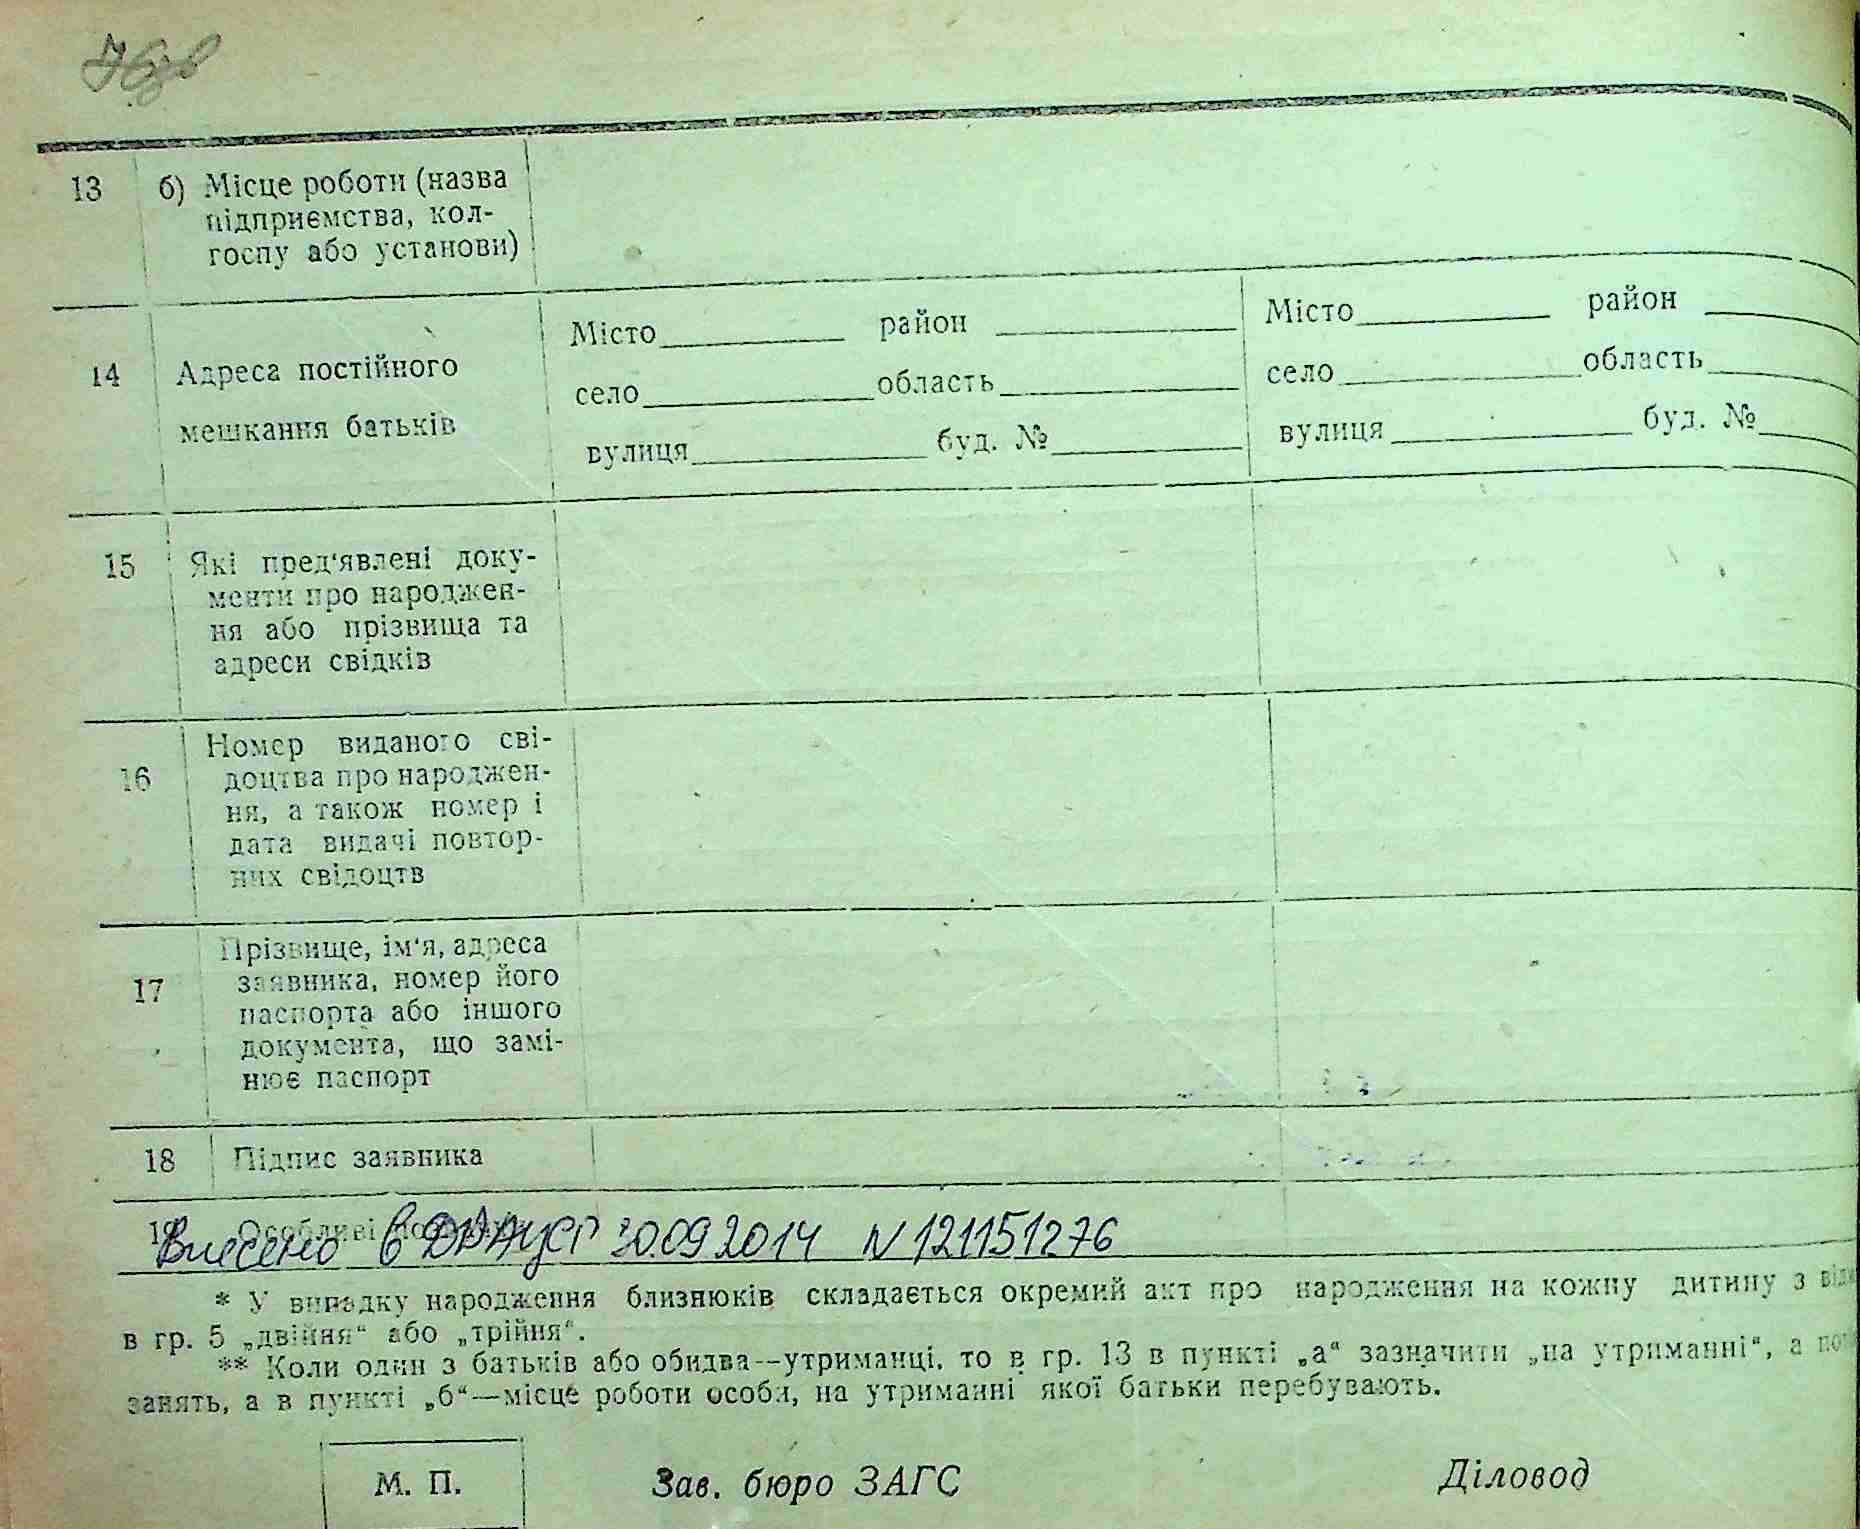 13 б) Місце роботи (назва
підприємства, кол-
госпу або установи)
14 Адреса постійного
мешкання батьків
Місто район
село область
вулиця буд. №
Місто район
село область
вулиця буд. №
15 Які пред‘явлені доку-
менти про народжен-
ня або прізвища та
адреси свідків
16 Номер виданого сві-
доцтва про народжен-
ня, а також номер і
дата видачі повтор-
них свідоцтв
17 Прізвище, ім‘я, адреса
заявника, номер його
паспорта або іншого
документа, що замі-
нює паспорт
18 Підпис заявника
19 Особливі
Внесено в ДРАЦСГ 30.09.2014 N 121151276
* У випадку народження близнюків складається окремий акт про народження на кожну дитину з
в гр. 5 „двійня“ або „трійня“.
** Коли один з батьків або обидва—утриманці, то в гр. 13 в пункті „а“ зазначити „на утриманні“, а
занять, а в пункті „б“—місце роботи особи, на утриманні якої батьки перебувають.
М. П. Зав. бюро ЗАГС Діловод